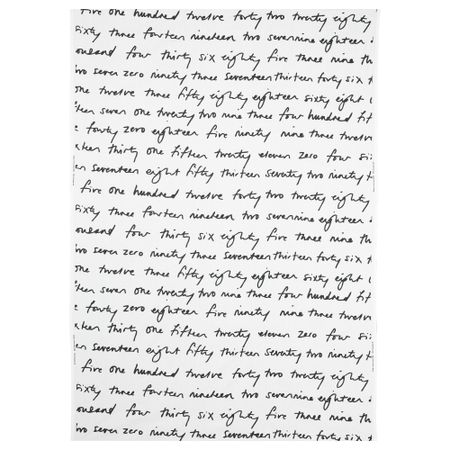 five one hundred twelve forty two twenty eighty
sixty three fourteen nineteen two seven nine eighteen
ousand four thirty six eighty five three nine th
wo seven zero ninety three seventeen thirteen forty six t
one twelve three fifty eighty eighteen sixty eight
teen seven one twenty two nine three four hundred fi
e forty zero eighteen five ninety nine three twelve
teen thirty one fifteen twenty eleven zero four si
en seventeen eight fifty thirteen seventy two ninety t
five one hundred twelve forty two twenty eighty
sixty three fourteen nineteen two seven nine eighteen
ousand four thirty six eighty five three nine th
wo seven zero ninety three seventeen thirteen forty six t
one twelve three fifty eighty eighteen sixty eight
teen seven one twenty two nine three four hundred fi
e forty zero eighteen five ninety nine three twelve
teen thirty one fifteen twenty eleven zero four si
en seventeen eight fifty thirteen seventy two ninety t
five one hundred twelve forty two twenty eighty
sixty three fourteen nineteen two seven nine eighteen
ousand four thirty six eighty five three nine th
wo seven zero ninety three seventeen thirteen forty six t